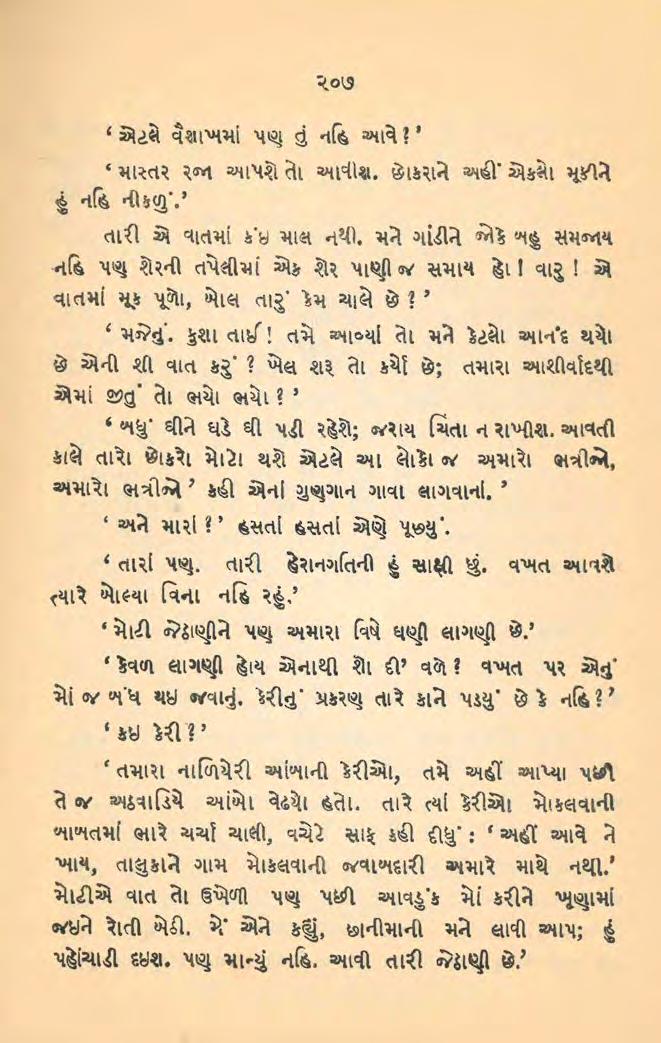 ૨૦૭
‘ એટલે વૈશાખમાં પણ તું નહિ આવે ? ’
‘ માસ્તર રજા આપશે તો આવીશ. છોકરાને અહીં એકલો મૂકીને
હું નહિ નીકળું.’
તારી એ વાતમાં કંઇ માલ નથી. મને ગાંડીને જોકે બહુ સમજાય
નહિ પણ શેરની તપેલીમાં એક શેર પાણી જ સમાય હો ! વારુ ! એ
વાતમાં મૂક પૂળો, બોલ તારું કેમ ચાલે છે ? ’
‘ મજેનું. કુશા તાઈ ! તમે આવ્યાં તો મને કેટલો આનંદ થયો
છે એની શી વાત કરું ? ખેલ શરૂ તો કર્યો છે; તમારા આશીર્વાદથી
એમાં જીતું તો ભયો ભયો ! ’
‘ બધું ઘીને ઘડે ઘી પડી રહેશે; જરાય ચિંતા ન રાખીશ. આવતી
કાલે તારો છોકરો મોટો થશે એટલે આ લોકો જ અમારો ભત્રીજો,
અમારો ભત્રીજો ’ કહી એનાં ગુણગાન ગાવા લાગવાનાં. ’
‘ અને મારાં ? ’ હસતાં હસતાં એણે પૂછ્યું.
‘ તારાં પણ. તારી હેરાનગતિની હું સાક્ષી છું. વખત આવશે
ત્યારે બોલ્યા વિના નહિ રહું.’
‘ મોટી જેઠાણીને પણ અમારા વિષે ઘણી લાગણી છે.’
‘ કેવળ લાગણી હોય એનાથી શો દી’ વળે ? વખત પર એનું
મોં જ બંધ થઇ જવાનું. કેરીનું પ્રકરણ તારે કાને પડયું છે કે નહિ ? ’
‘ કઇ કેરી ? ’
‘ તમારા નાળિયેરી આંબાની કેરીઓ, તમે અહીં આપ્યા પછી
તે જ અઠવાડિયે આંબો વેઢયો હતો. તારે ત્યાં કેરીઓ મોકલવાની
બાબતમાં ભારે ચર્ચા ચાલી, વચેટે સાફ કહી દીધું : ‘ અહીં આવે ને
ખાય, તાલુકાને ગામ મોકલવાની જવાબદારી અમારે માથે નથી.’
મોટીએ વાત તો ઉખેળી પણ પછી આવડુંક મોં કરીને ખૂણામાં
જઇને રોતી બેઠી. મેં એને કહ્યું, છાનીમાની મને લાવી આપ; હું
પહોંચાડી દઇશ. પણ માન્યું નહિ. આવી તારી જેઠાણી છે.’